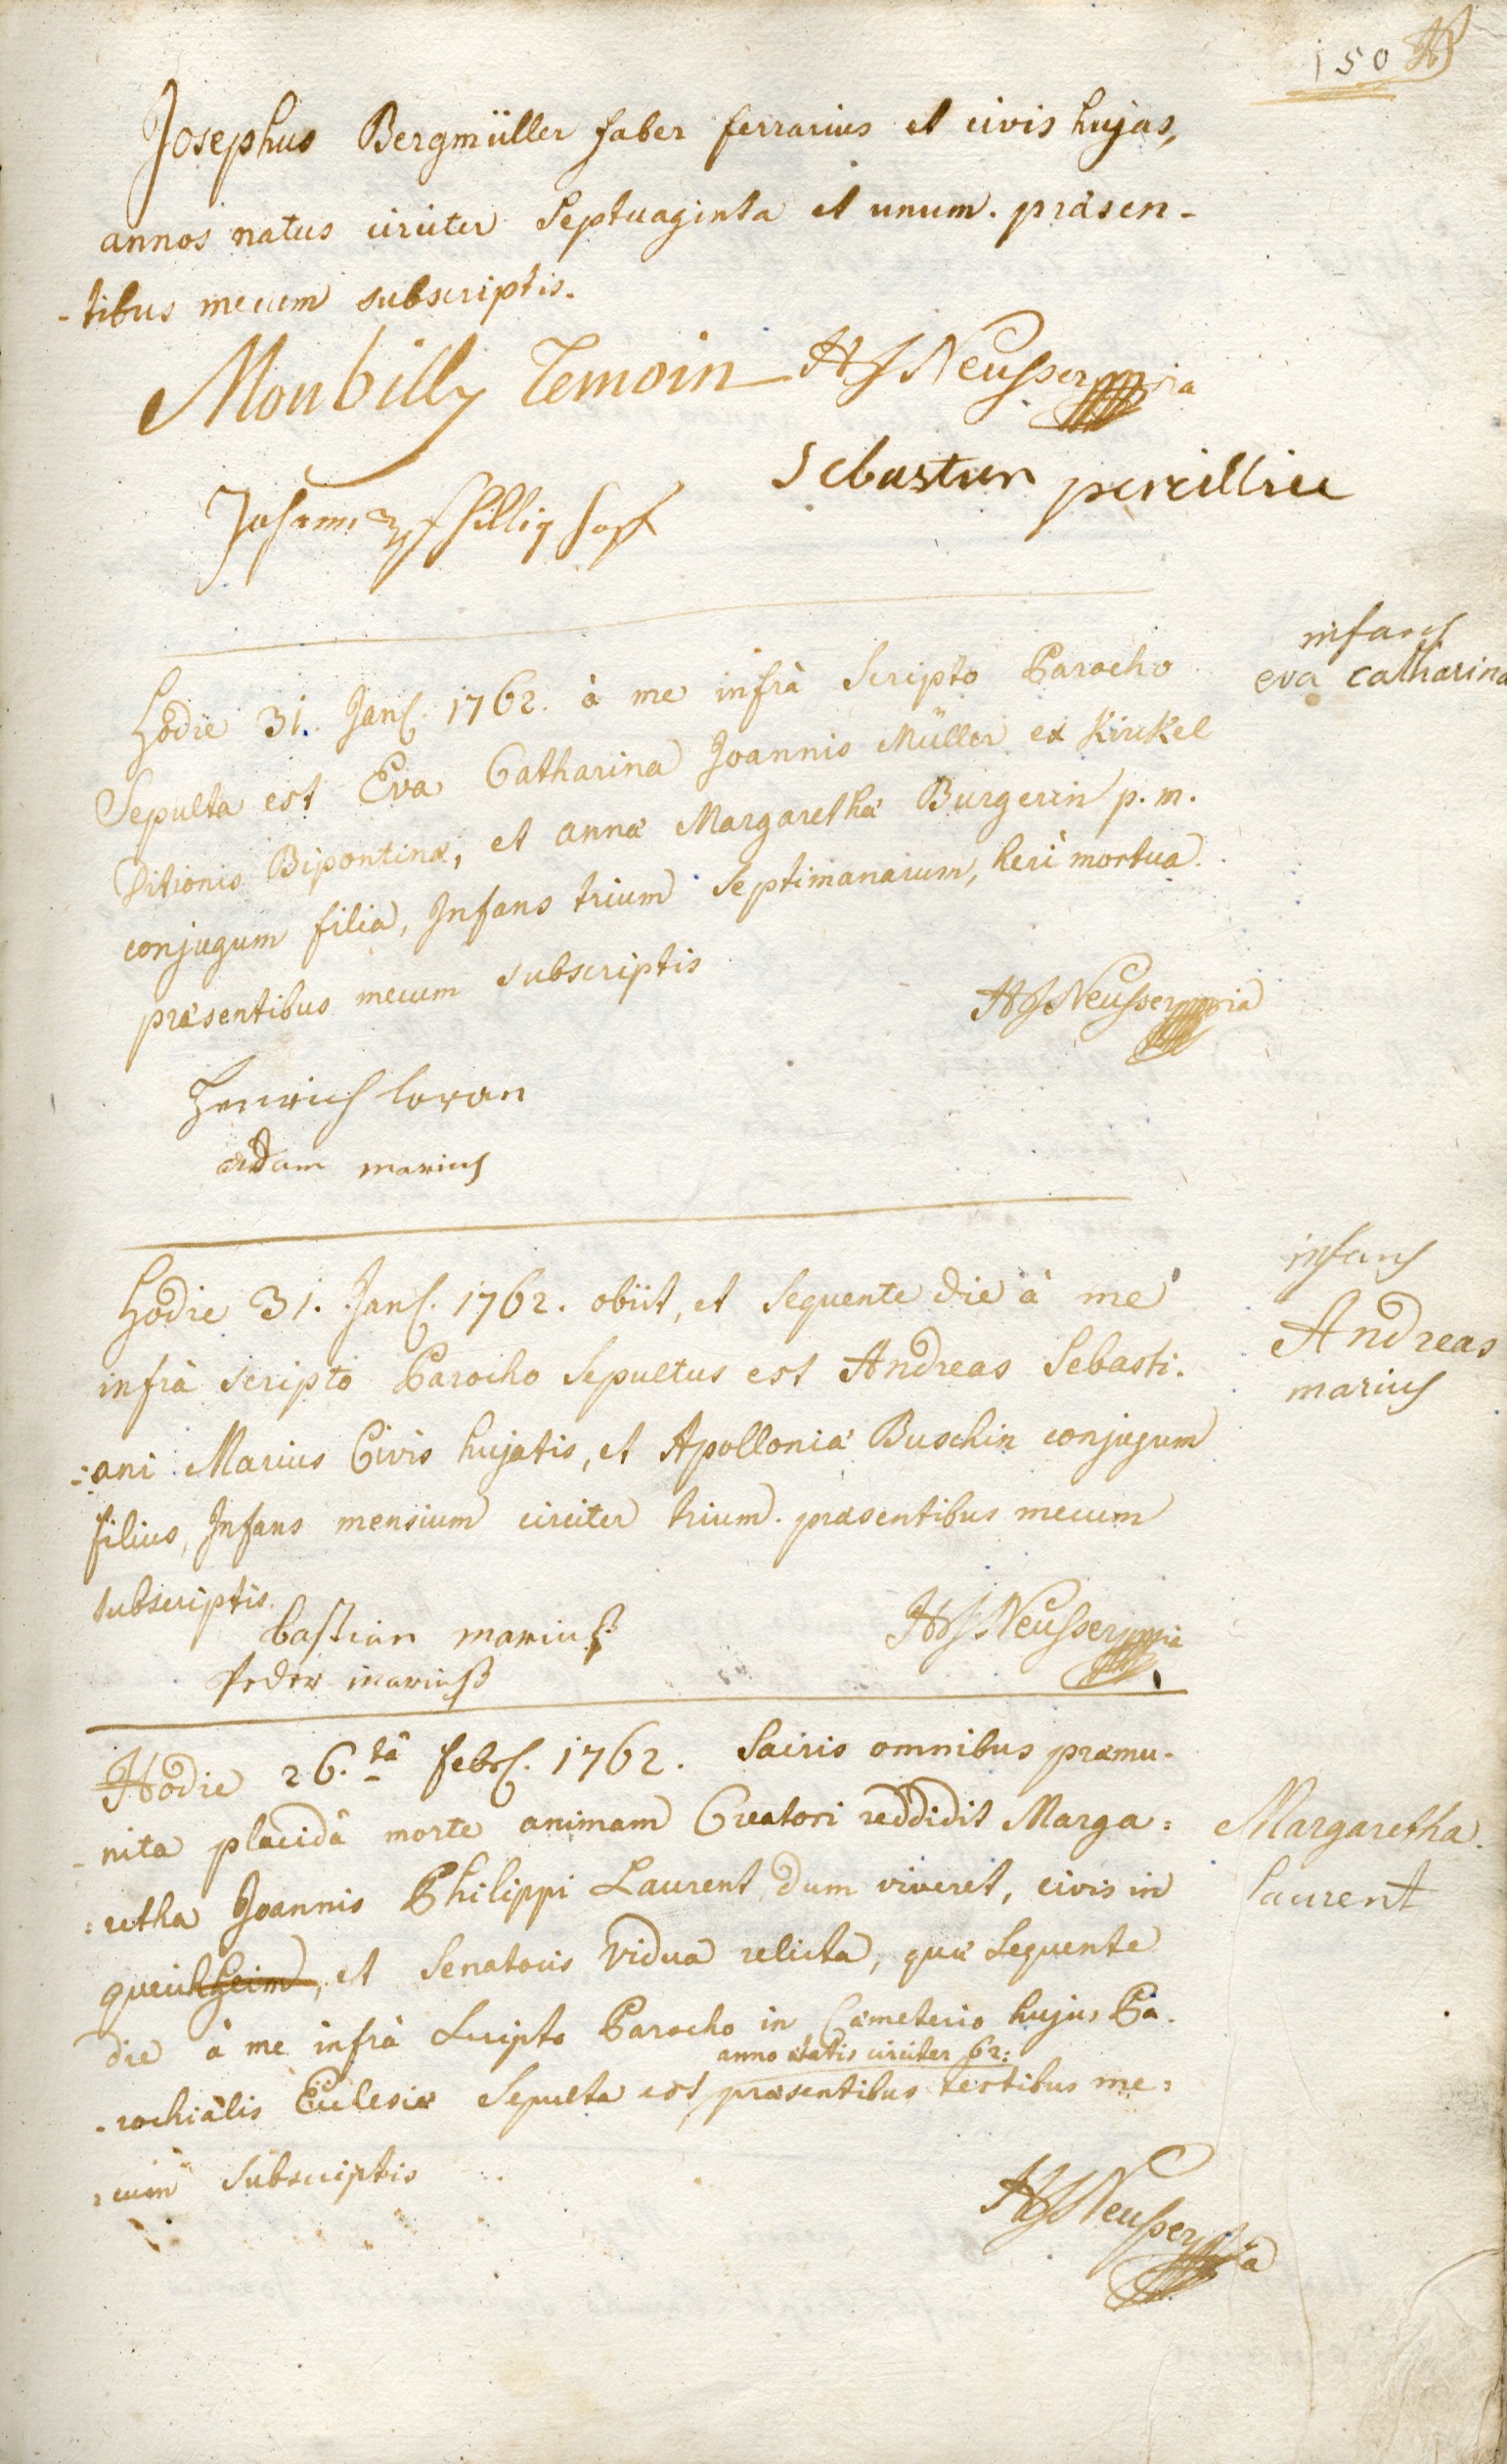 150
Josephus Bergmüller faber ferrarius et civis hujas,
annos natus circiter Septuaginta et unum. præsen-
-tibus mecum subscriptis.
Monbilly Temoin HJNeusser mpria
Sebastian
Johannes
infans
eva catharina
Hodie 31. Jan. 1762. à me infrà Scripto Parocho
Sepulta est Eva Catharina Joannis Müller ex Kirkel
Ditionis Bipontinæ, et annæ Margarethæ Burgerin p. m.
conjugum filia, Infans trium Septimanarum, heri mortua.
præsentibus mecum subscriptis
HJNeusser mpria
Henrich loran
adam marius
Hodie 31. Jan. 1762. obiit, et Sequente die à me
infrà scripto Parocho Sepultus est Andreas Sebasti-
-ani Marius Civis hujatis, et Apolloniæ Buschin conjugum
filius, Infans mensium circiter trium. præsentibus mecum
subscriptis.
infans
Andreas
marius
bastian mariuß
HJNeusser mpria
Peder mariuß
Hodie 26.tâ feb. 1762. Sacris omnibus præmu-
-nita placidâ morte animam Creatori reddidit Marga=
=retha Joannis Philippi Laurent dum viveret, civis in
queichheim, et Senatoris Vidua relicta, quæ Sequente
die à me infrà Scripto Parocho in Cæmeterio hujus Pa-
anno ætatis circiter 62:
-rochialis Ecclesiæ Sepulta est, præsentibus testibus me=
=cum Subscriptis
Margaretha
Laurent
HJNeusser mpria